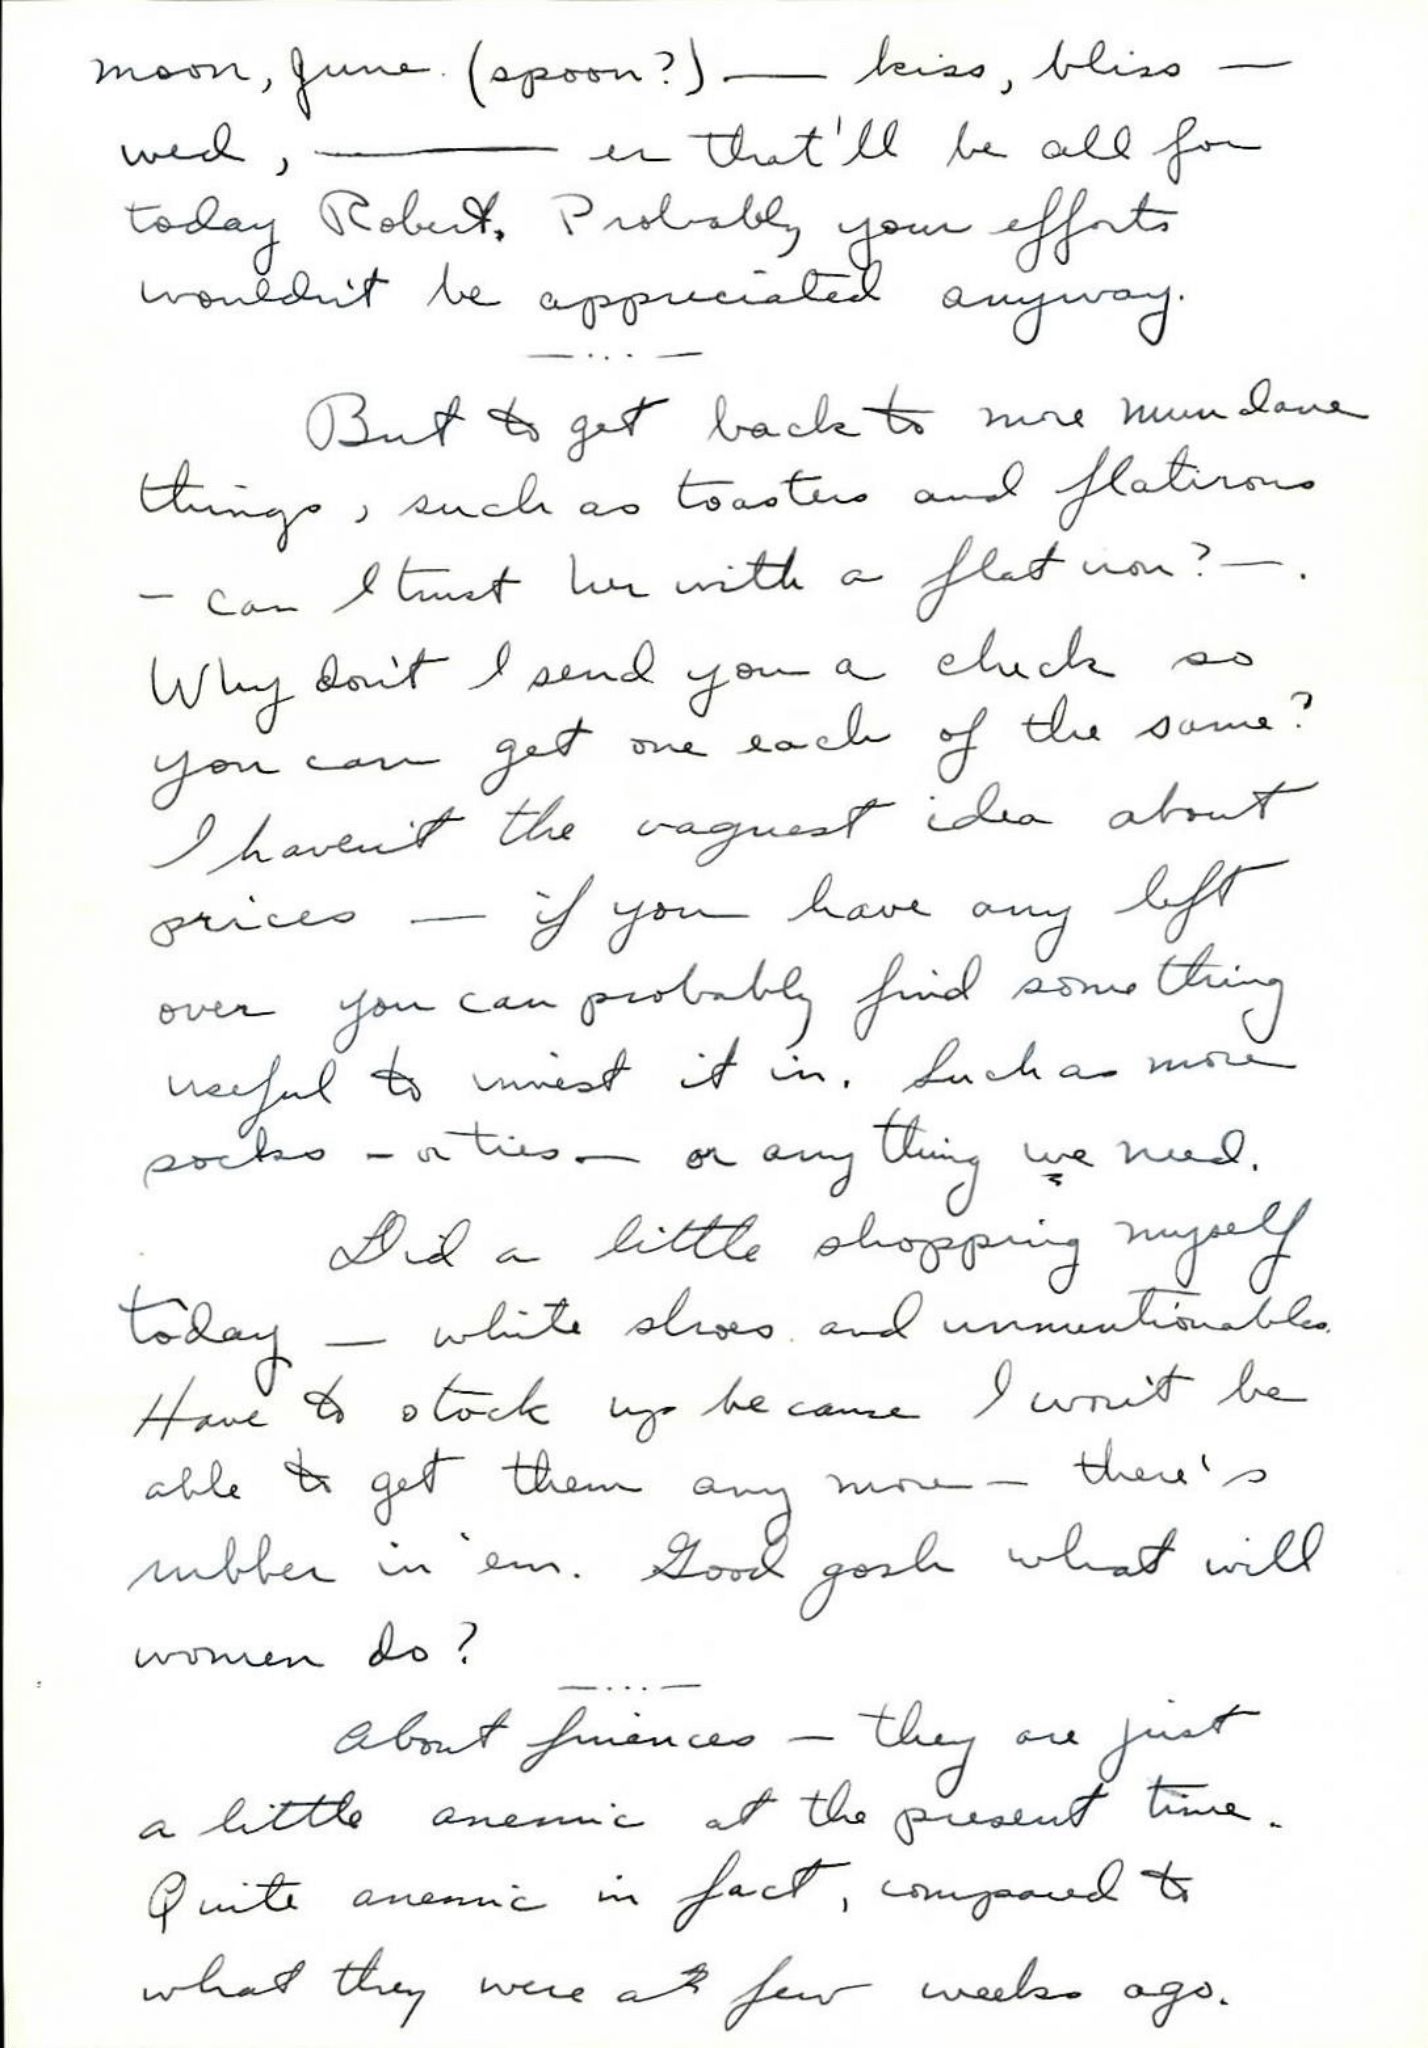 moon, June. (spoon?) — kiss, bliss —
wed, ——— er that'll be all for
today Robert. Probably your efforts
wouldn't be appreciated anyway.
— ... —
But to get back to more mundane
things, such as toasters and flatirons
— can I trust her with a flat iron? —.
Why don't I send you a check so
you can get one each of the same?
I haven't the vaguest idea about
prices — if you have any left
over you can probably find something
useful to invest it in. Such as more
socks — or ties — or anything we need.
Did a little shopping myself
today — white shoes and unmentionables.
Have to stock up because I won't be
able to get them any more — there's
rubber in 'em. Good gosh what will
women do?
— ... —
About finances — they are just
a little anemic at the present time.
Quite anemic in fact, compared to
what they were a few weeks ago.